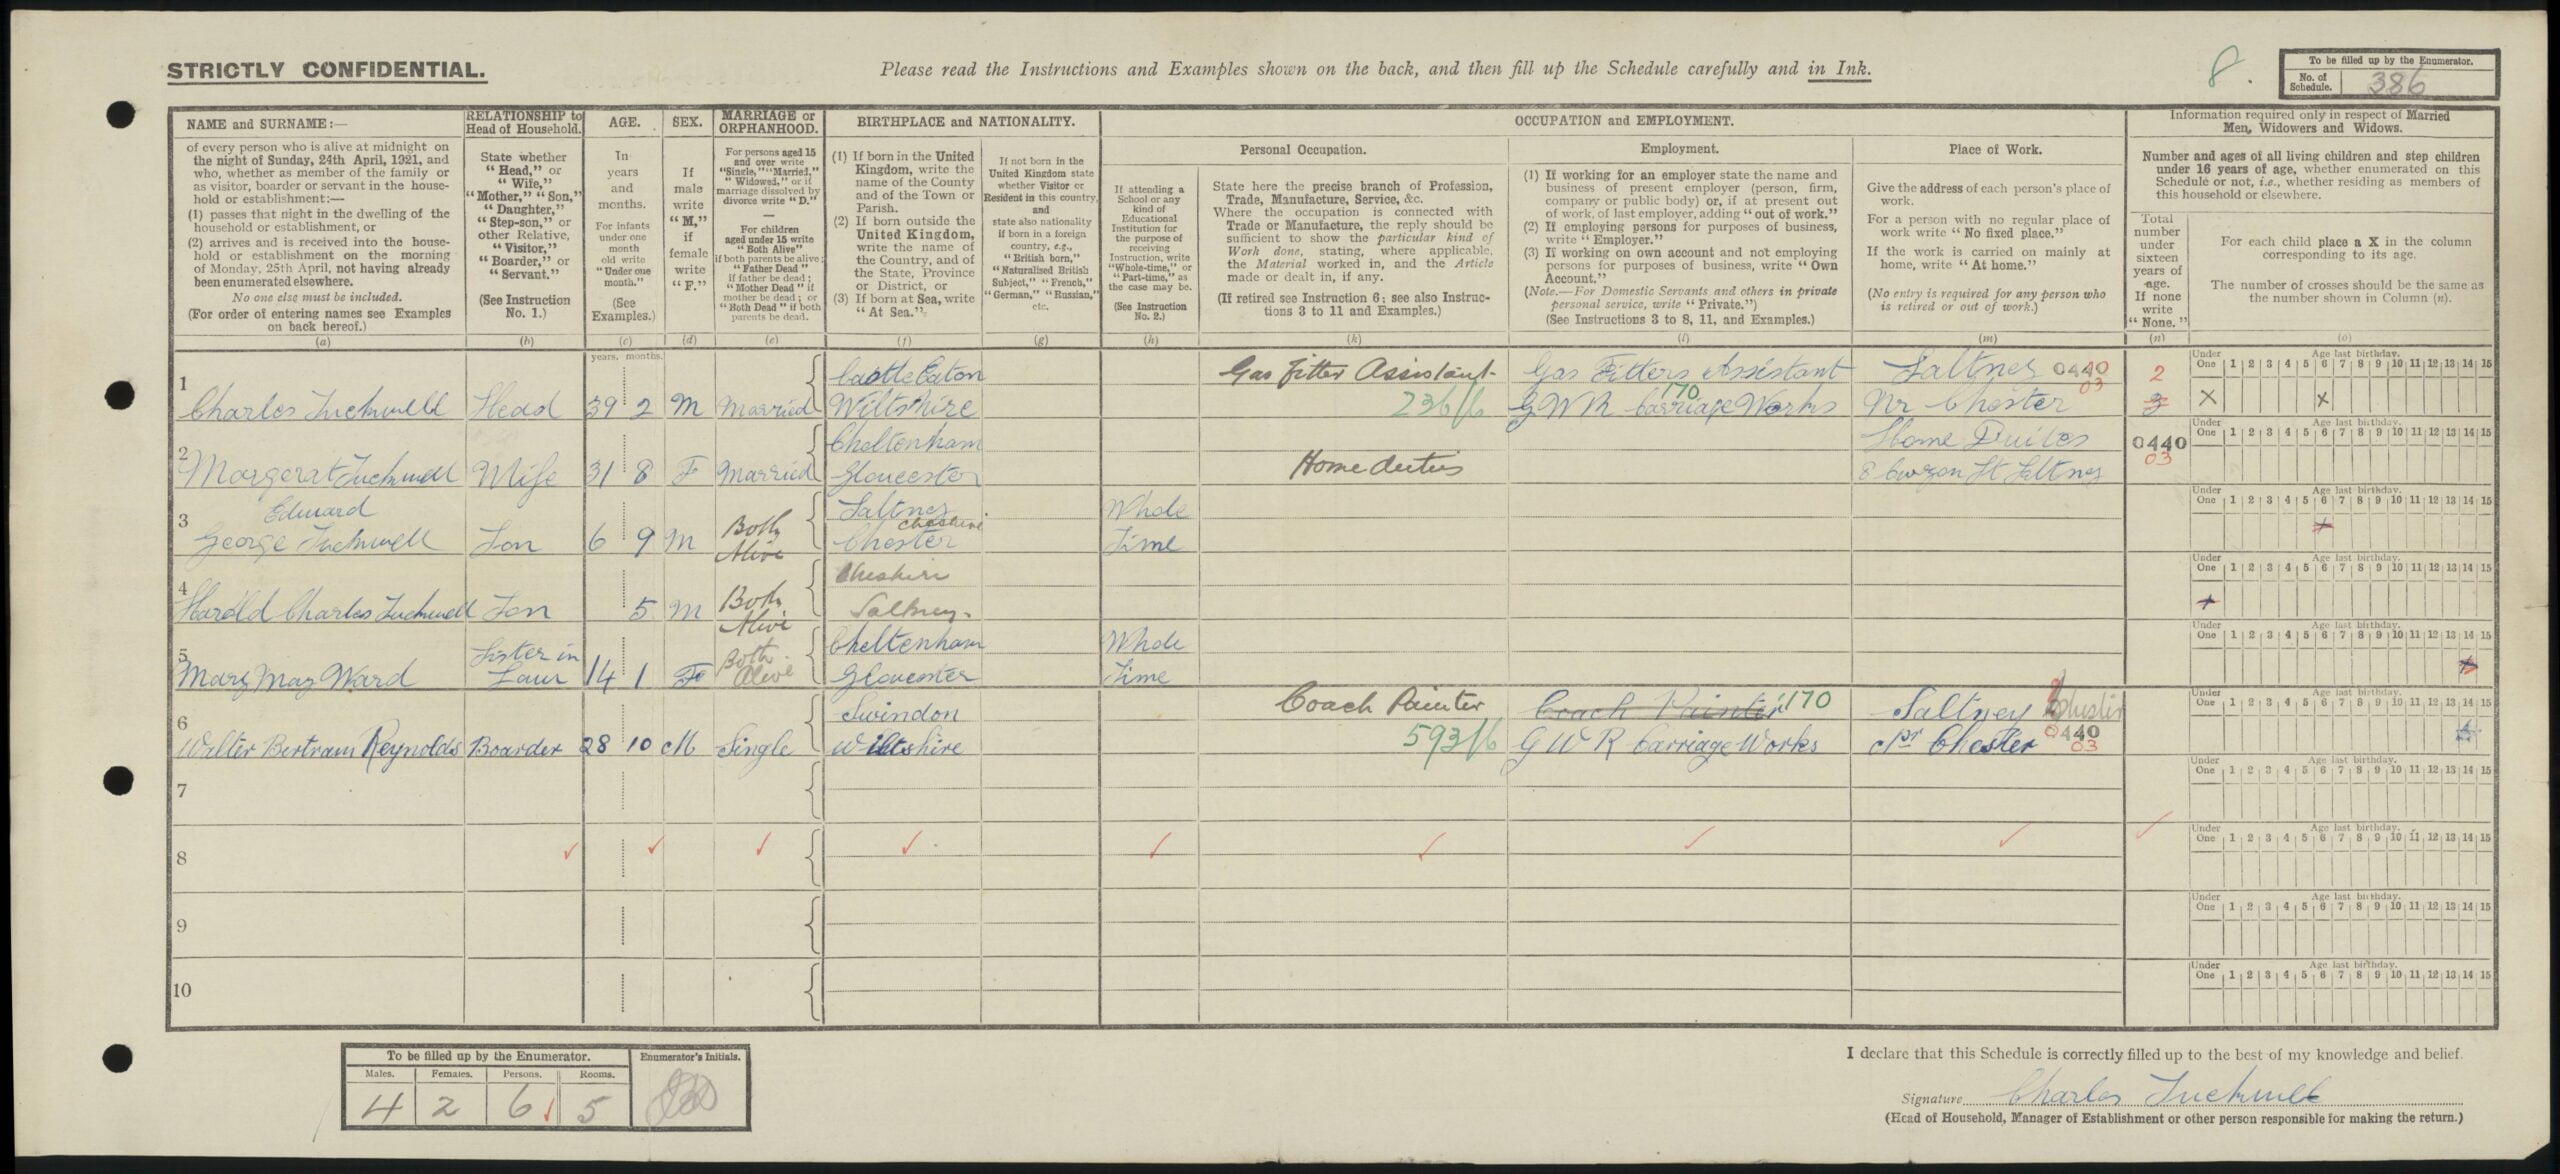 STRICTLY CONFIDENTIAL.
Please read the Instructions and Examples shown on the back, and then fill up the Schedule carefully and in Ink.
8.
To be filled up by the Enumerator.
No. of Schedule. 386
NAME and SURNAME:—
of every person who is alive at midnight on
the night of Sunday, 24th April, 1921, and
who, whether as member of the family or
as visitor, boarder or servant in the house-
hold or establishment:—
(1) passes that night in the dwelling of the
household or establishment, or
(2) arrives and is received into the house-
hold or establishment on the morning
of Monday, 25th April, not having already
been enumerated elsewhere.
No one else must be included.
(For order of entering names see Examples
on back hereof.)
(a)
RELATIONSHIP to
Head of Household.
State whether
"Head," or
"Wife,"
"Mother," "Son,"
"Daughter,"
"Step-son," or
other Relative,
"Visitor,"
"Boarder," or
"Servant."
(See Instruction
No. 1.)
(b)
AGE.
In
years
and
months.
For infants
under one
month
old write
"Under one
month."
(See
Examples.)
(c)
years. months.
SEX.
If
male
write
"M,"
if
female
write
"F."
(d)
MARRIAGE or
ORPHANHOOD.
For persons aged 15
and over write
"Single," "Married,"
"Widowed," or if
marriage dissolved by
divorce write "D."
—
For children
aged under 15 write
"Both Alive"
if both parents be alive;
"Father Dead"
if father be dead;
"Mother Dead" if
mother be dead; or
"Both Dead" if both
parents be dead.
(e)
BIRTHPLACE and NATIONALITY.
(1) If born in the United
Kingdom, write the
name of the County
and of the Town or
Parish.
(2) If born outside the
United Kingdom,
write the name of
the Country, and of
the State, Province
or District, or
(3) If born at Sea, write
"At Sea."
(f)
If not born in the
United Kingdom state
whether Visitor or
Resident in this country,
and
state also nationality
if born in a foreign
country, e.g.,
"British born,"
"Naturalised British
Subject," "French,"
"German," "Russian,"
etc.
(g)
OCCUPATION and EMPLOYMENT.
If attending a
School or any
kind of
Educational
Institution for
the purpose of
receiving
Instruction, write
"Whole-time," or
"Part-time," as
the case may be.
(See Instruction
No. 2.)
(h)
Personal Occupation.
State here the precise branch of Profession,
Trade, Manufacture, Service, &c.
Where the occupation is connected with
Trade or Manufacture, the reply should be
sufficient to show the particular kind of
Work done, stating, where applicable,
the Material worked in, and the Article
made or dealt in, if any.
(If retired see Instruction 6; see also Instruc-
tions 3 to 11 and Examples.)
(k)
Employment.
(1) If working for an employer state the name and
business of present employer (person, firm,
company or public body) or, if at present out
of work, of last employer, adding "out of work."
(2) If employing persons for purposes of business,
write "Employer."
(3) If working on own account and not employing
persons for purposes of business, write "Own
Account."
(Note.—For Domestic Servants and others in private
personal service, write "Private.")
(See Instructions 3 to 8, 11, and Examples.)
(l)
Place of Work.
Give the address of each person's place of
work.
For a person with no regular place of
work write "No fixed place."
If the work is carried on mainly at
home, write "At home."
(No entry is required for any person who
is retired or out of work.)
(m)
Information required only in respect of Married
Men, Widowers and Widows.
Number and ages of all living children and step children
under 16 years of age, whether enumerated on this
Schedule or not, i.e., whether residing as members of
this household or elsewhere.
Total
number
under
sixteen
years of
age.
If none
write
"None."
(n)
For each child place a X in the column
corresponding to its age.
The number of crosses should be the same as
the number shown in Column (n).
(o)
Under One Age last birthday. 1 2 3 4 5 6 7 8 9 10 11 12 13 14 15
1 Castle Eaton Gas Fitter Assistant Gas Fitters Assistant Saltney 0440 03 2
Charles Tuckwell Head 39 2 M Married Wiltshire 236/6 GWR Carriage Works 170 Nr Chester 3 X X
Under One Age last birthday. 1 2 3 4 5 6 7 8 9 10 11 12 13 14 15
2 Cheltenham Home Duties 0440 03
Margerat Tuckwell Wife 31 8 F Married Gloucester Home duties 8 Curzon St Saltney
Under One Age last birthday. 1 2 3 4 5 6 7 8 9 10 11 12 13 14 15
3 Edward Saltney Whole
George Tuckwell Son 6 9 M Both Alive Chester Cheshire Time
Under One Age last birthday. 1 2 3 4 5 6 7 8 9 10 11 12 13 14 15
4 Cheshire
Harold Charles Tuckwell Son 5 M Both Alive Saltney
Under One Age last birthday. 1 2 3 4 5 6 7 8 9 10 11 12 13 14 15
5 Sister in Cheltenham Whole
Mary May Ward Law 14 1 F Both Alive Gloucester Time
Under One Age last birthday. 1 2 3 4 5 6 7 8 9 10 11 12 13 14 15
6 Swindon Coach Painter Coach Painter 170 Saltney Chester
Walter Bertram Reynolds Boarder 28 10 M Single Wiltshire 593/6 G W R Carriage Works Nr Chester 0440 03
Under One Age last birthday. 1 2 3 4 5 6 7 8 9 10 11 12 13 14 15
7
Under One Age last birthday. 1 2 3 4 5 6 7 8 9 10 11 12 13 14 15
8
Under One Age last birthday. 1 2 3 4 5 6 7 8 9 10 11 12 13 14 15
9
Under One Age last birthday. 1 2 3 4 5 6 7 8 9 10 11 12 13 14 15
10
To be filled up by the Enumerator.
Males. Females. Persons. Rooms.
4 2 6 5
Enumerator's Initials.
I declare that this Schedule is correctly filled up to the best of my knowledge and belief.
Signature Charles Tuckwell
(Head of Household, Manager of Establishment or other person responsible for making the return.)